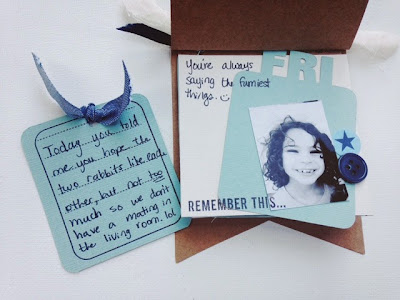 Today you told
me you hope the
two rabbits like each
other, but not too
much so we don't
have a mating in
the living room. lol
You're always
saying the funniest
things. ☺
FRI
REMEMBER THIS...